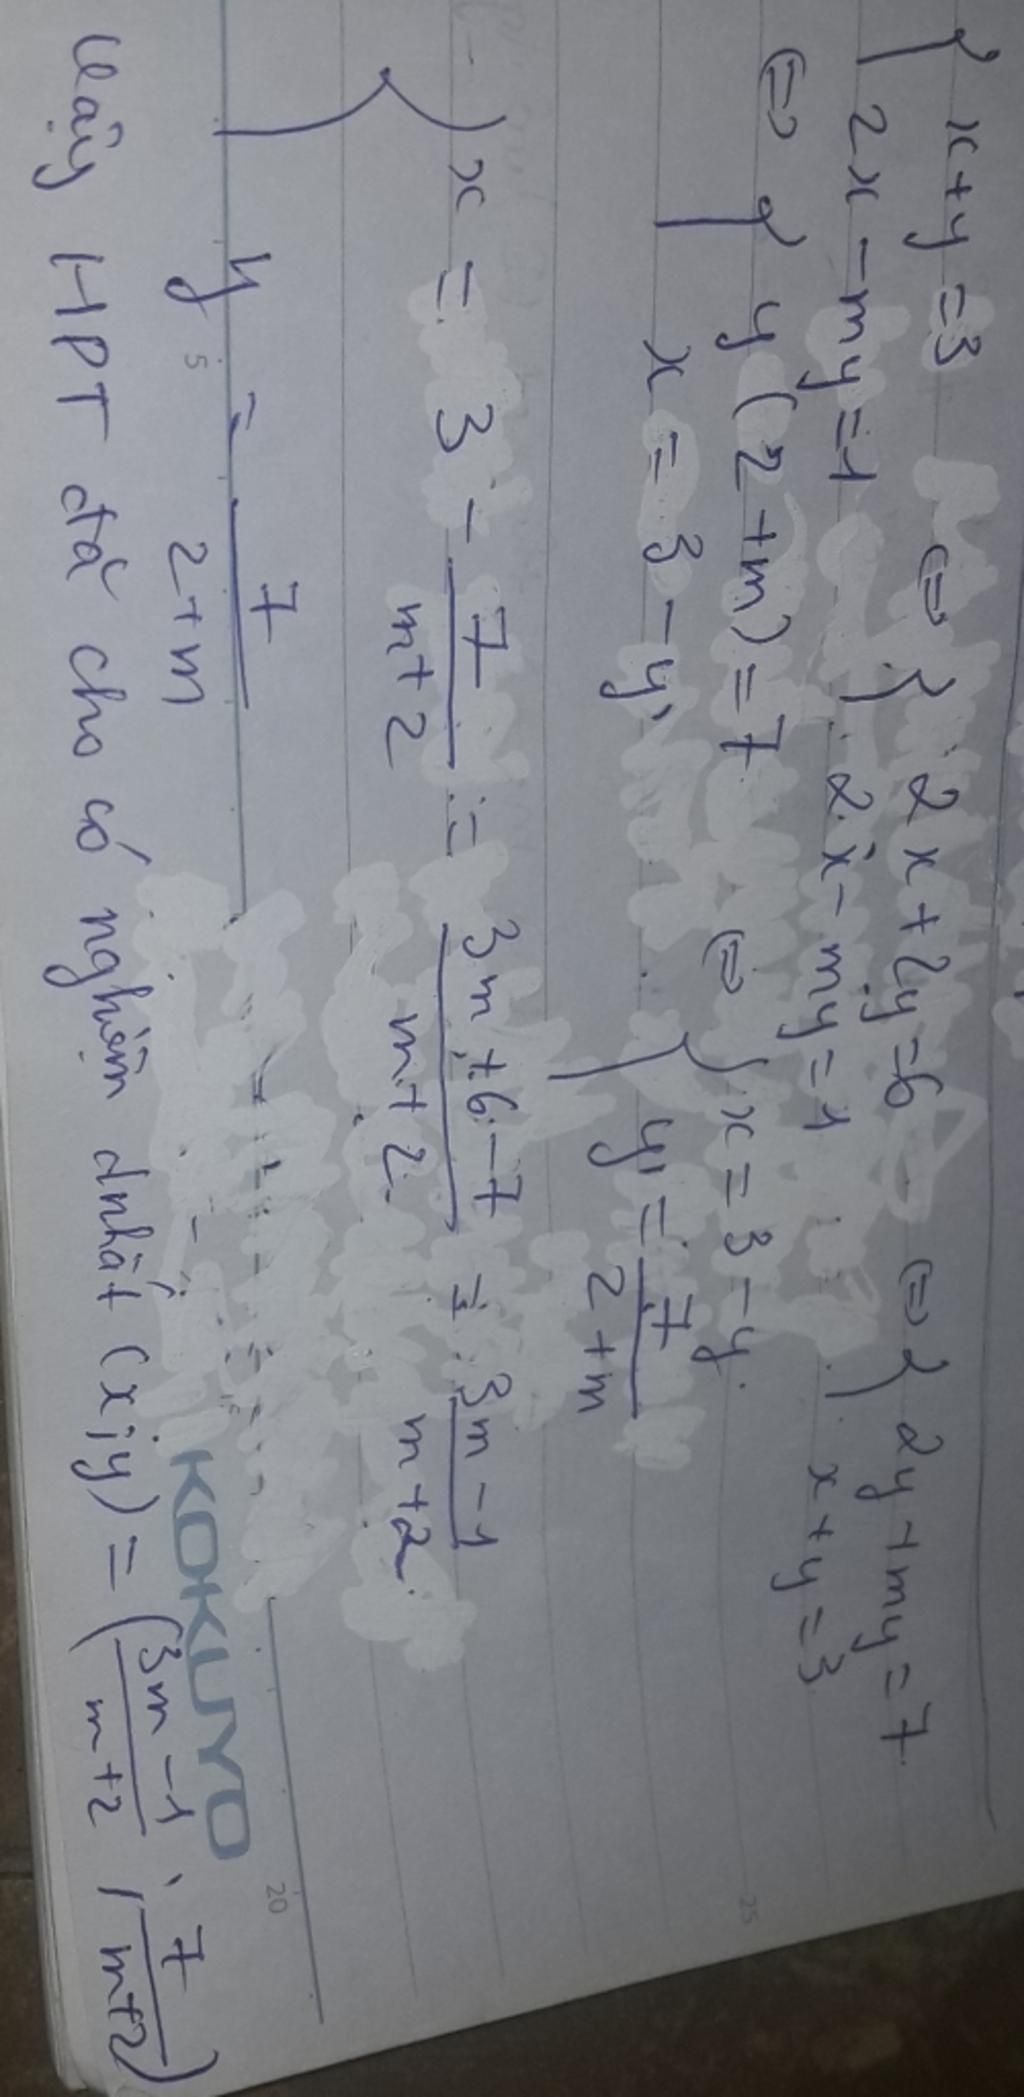 { x+y=3 ⇔ { 2x+2y=6 ⇔ { 2y+my=7
2x-my=1 2x-my=1 x+y=3
⇔ { y(2+m)=7 ⇔ { x=3-y
x=3-y y=7/(2+m)
{ x = 3 - 7/(m+2) = (3m+6-7)/(m+2) = (3m-1)/(m+2)
y = 7/(2+m)
Vậy HPT đã cho có nghiệm dnhất (x;y) = ((3m-1)/(m+2); 7/(m+2))
KOKUYO
5
20
25